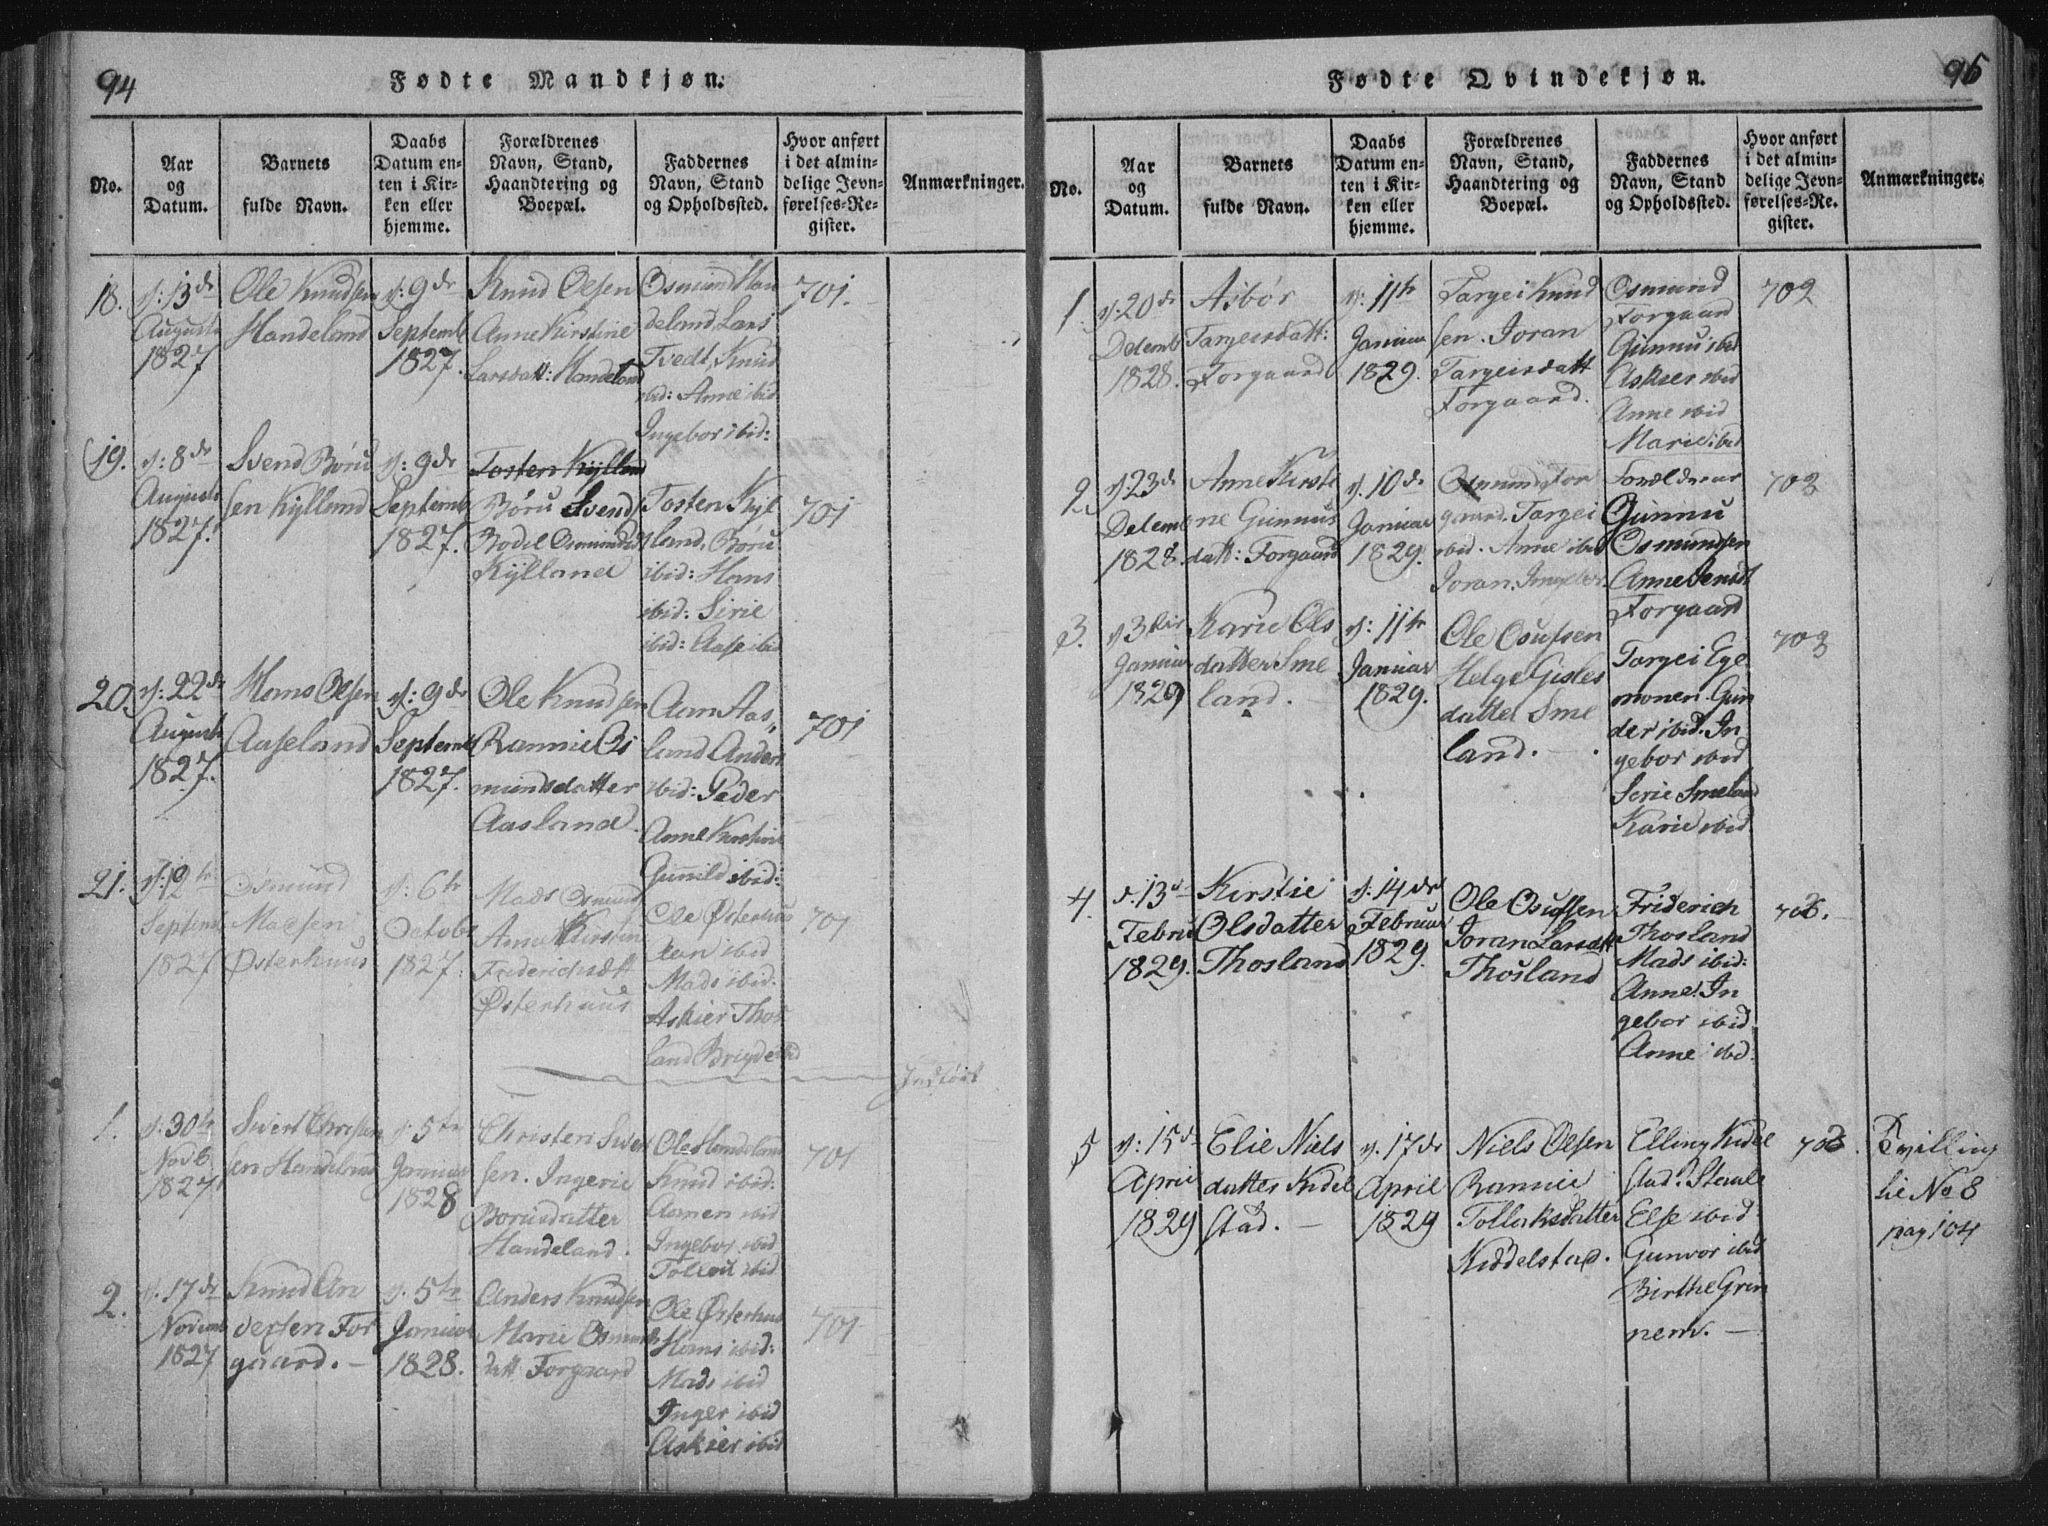 94
Fødte Mandkjøn.
No.
Aar
og
Datum.
Barnets
fulde Navn.
Daabs
Datum en-
ten i Kir-
ken eller
hjemme.
Forældrenes
Navn, Stand,
Haandtering og
Boepæl.
Faddernes
Navn, Stand
og Opholdssted.
Hvor anført
i det almin-
delige Jevn-
førelses-Re-
gister.
Anmærkninger.
18.
d: 13de
August
1827
Ole Knudsen
Handeland
d: 9de
Septemb
1827.
Knud Olsen
Anne Kirstine
Larsdatt: Handeland
Osmund Han
deland, Lars
Tvedt, Knud
ibid: Anne ibid
Ingebor ibid:
701.
19.
d: 8de
August
1827.
Svend Böru
sen Kylland
d: 9de
Septemb
1827.
Tosten Kylland
Böru Svends
Bodel Osmundsd
Kylland
Tosten Kyl
land, Böru
ibid: Hans
ibid: Sirie
ibid: Aase ibid
701
20.
d: 22de
August
1827.
Hans Olsen
Aaseland
d: 9de
Septemb
1827.
Ole Knudsen
Rannie Os
mundsdatter
Aasland.
Aan Aas
land Anders
ibid: Peder
Anne Kirstine
Gunild ibid:
701
21.
d: 12te
Septemb
1827
Osmund
Madsen
Østerhuus
d: 6te
Octobr
1827.
Mads Osmund
Anne Kirstin
Frederichsdtt
Østerhuus
Ole Østerhuus
Aan ibid
Mads ibid.
Askier Thos
land Brigde ibid
701
Indført
1.
d. 30te
Novb
1827
Sivert Christen
sen Handeland
d: 5te
Januar
1828
Christen Siver
sen. Ingerie
Borusdatter
Handeland.
Ole Handeland
Knud ibid:
Aanen ibid
Ingebor ibid
Tollevi ibid
701
2.
d. 17de
Novemb
1827
Knud An
dersen For
gaard. —
d. 5te
Januar
1828.
Anders Knudsen
Marie Osmunds
datt Forgaard
Ole Østerhuus
Hans ibid:
Mads ibid
Inger ibid
Askier ibid
701
95
Fødte Qvindekjøn.
No.
Aar
og
Datum.
Barnets
fulde Navn.
Daabs
Datum en-
ten i Kir-
ken eller
hjemme.
Forældrenes
Navn, Stand,
Haandtering og
Boepæl.
Faddernes
Navn, Stand
og Opholdssted.
Hvor anført
i det almin-
delige Jevn-
førelses-Re-
gister.
Anmærkninger.
1.
d. 20de
Decemb
1828.
Asbör
Targeisdatt:
Forgaard
d: 11te
Januar
1829.
Targei Knud
sen. Joran
Targeisdatt
Forgaard.
Osmund
Forgaard
Gunnu ibid
Askier ibid
Anne ibid
Marie ibid
702
2.
d. 23de
Decemb
1828.
Anne Kirsti
ne Gunnus
datt: Forgaard
d. 10de
Januar
1829.
Osmund For
gaard. Targei
ibid. Anne ibid
Joran. Ingebor
Forældrene
Gunnu
Osmundsen
Anne Jensdt
Forgaard
703
3.
d 3die
Januar
1829
Karie Ols
datter Sme
land.
d: 11te
Januar
1829.
Ole Osufsen
Helge Gisles
datter Sme
land. —
Targei Ege
monen. Gun
der ibid. In
gebor ibid
Serie Smeland
Karie ibid
703
4.
d. 13de
Febru
1829.
Kirstie
Olsdatter
Thosland
d. 14de
Februar
1829.
Ole Osufsen
Joran Larsdtt
Thosland
Friderich
Thosland
Mads ibid:
Anne. In
gebor ibid
Anne ibid:
703.
5
d: 15de
April
1829
Elie Niels
datter Kidel
stad. —
d. 17de
April
1829
Niels Olsen
Rannie
Tollaksdatter
Kiddelstad.
Elling Kidel
stad. Staale
Else ibid
Gunvor ibid
Birthe Grin
nem. —
703.
Tvilling
sie No 8
pag 104